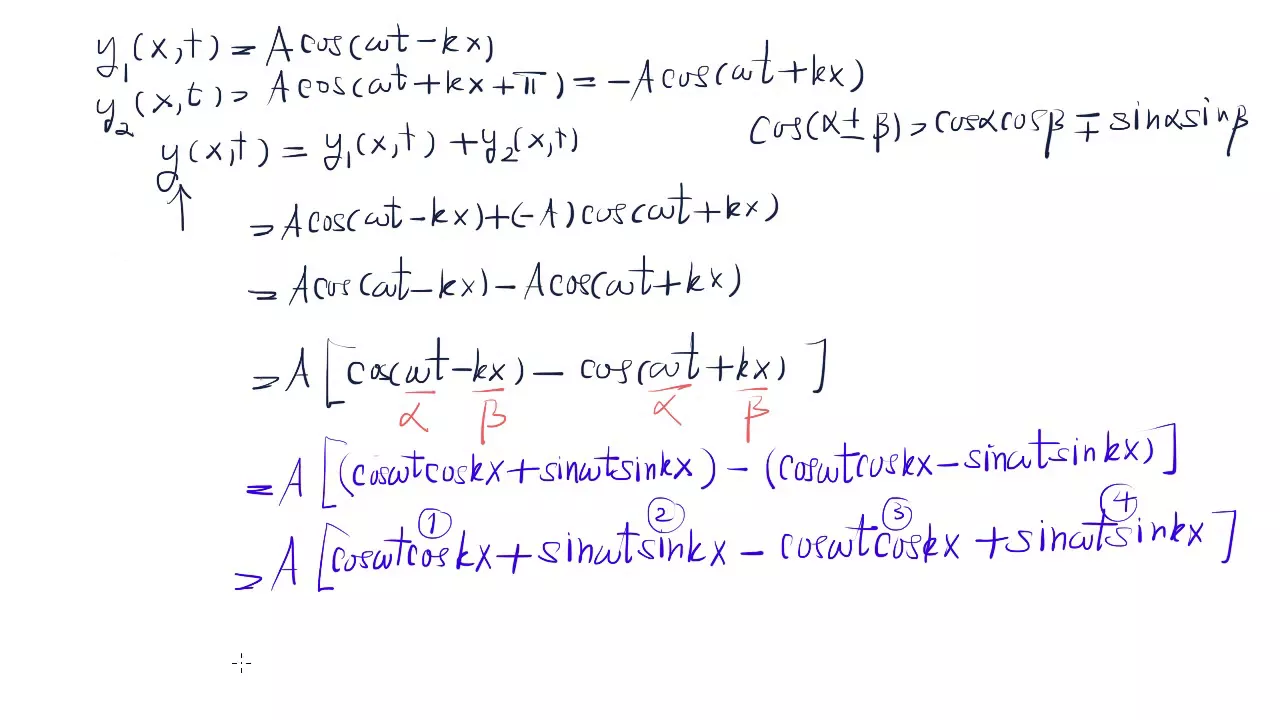 y₁(x,t) = A cos(ωt − kx)
y₂(x,t) = A cos(ωt + kx + π) = −A cos(ωt + kx)
cos(α ± β) = cosα cosβ ∓ sinα sinβ
y(x,t) = y₁(x,t) + y₂(x,t)
↑
= A cos(ωt − kx) + (−A) cos(ωt + kx)
= A cos(ωt − kx) − A cos(ωt + kx)
= A [cos(ωt − kx) − cos(ωt + kx)]
α β α β
= A [(cosωt coskx + sinωt sinkx) − (cosωt coskx − sinωt sinkx)]
① ② ③ ④
= A [cosωt coskx + sinωt sinkx − cosωt coskx + sinωt sinkx]